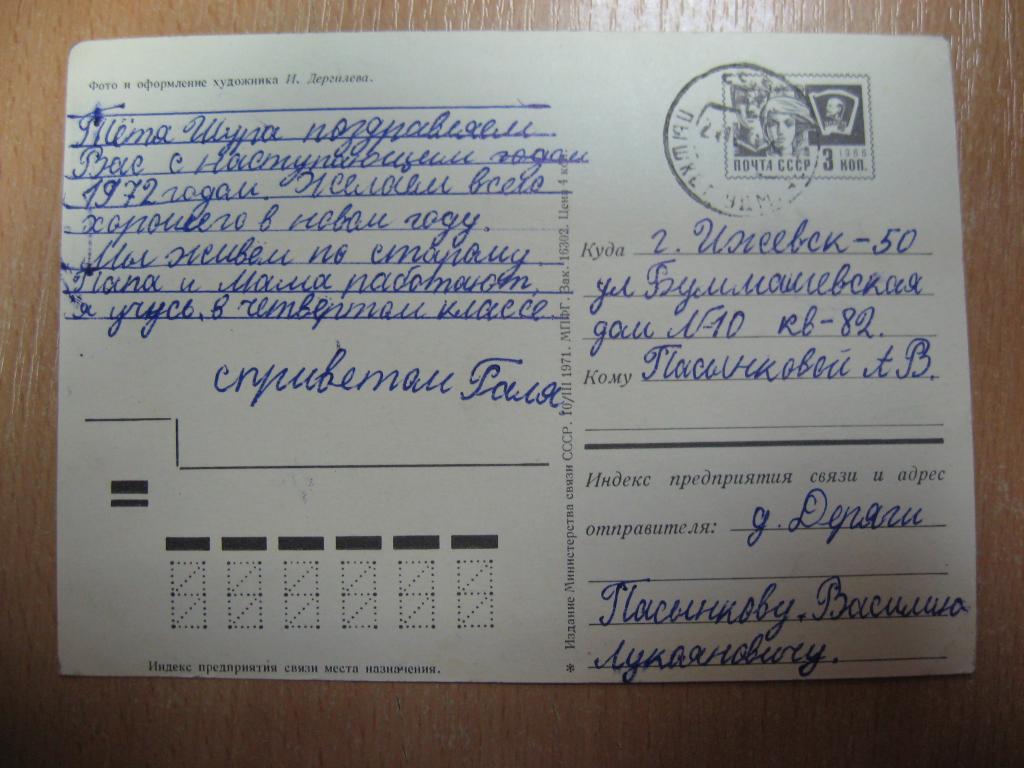 Фото и оформление художника И. Дергилева.
Тётя Шура поздравляем
Вас с наступающим годом
1972 годом. Желаем всего
хорошего в новом году.
Мы живём по старому
Папа и Мама работают,
я учусь в четвёртом классе.
с приветом Галя.
Индекс предприятия связи места назначения.
* Издание Министерства связи СССР. 10/III 1971. МПФГ. Зак. 16302. Цена 4 коп.
ПОЧТА СССР 3 КОП. 1966
Куда г. Ижевск-50
ул Буммашевская
дом №10 кв-82.
Кому Пасынковой А В.
Индекс предприятия связи и адрес
отправителя: д. Деряги
Пасынкову. Василию
Лукояновичу.